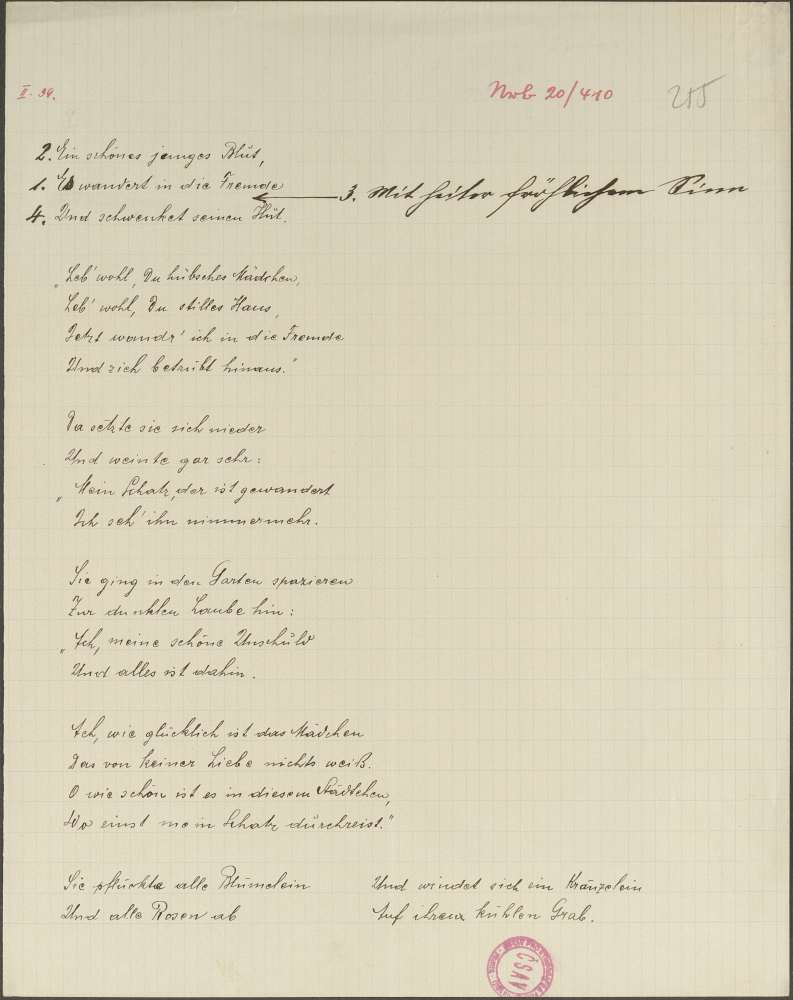 II. 34.
Nrb 20/410
215
2. Ein schönes junges Blut,
1. Es wandert in die Fremde
3. Mit heiter fröhlichem Sinn
4. Und schwenket seinen Hut.
„Leb' wohl, Du hübsches Mädchen,
Leb' wohl, Du stilles Haus,
Jetzt wandr' ich in die Fremde
Und zieh betrübt hinaus."
Da setzte sie sich nieder
Und weinte gar sehr:
„Mein Schatz, der ist gewandert
Ich seh' ihn nimmermehr.
Sie ging in den Garten spazieren
Zur dunklen Laube hin:
„Ach, meine schöne Unschuld
Und alles ist dahin.
Ach, wie glücklich ist das Mädchen
Das von keiner Liebe nichts weiß.
O wie schön ist es in diesem Städtchen,
Wo einst mein Schatz durchreist."
Sie pflückte alle Blümelein
Und alle Rosen ab
Und windet sich ein Kränzelein
Auf ihren kühlen Grab.
ČSAV